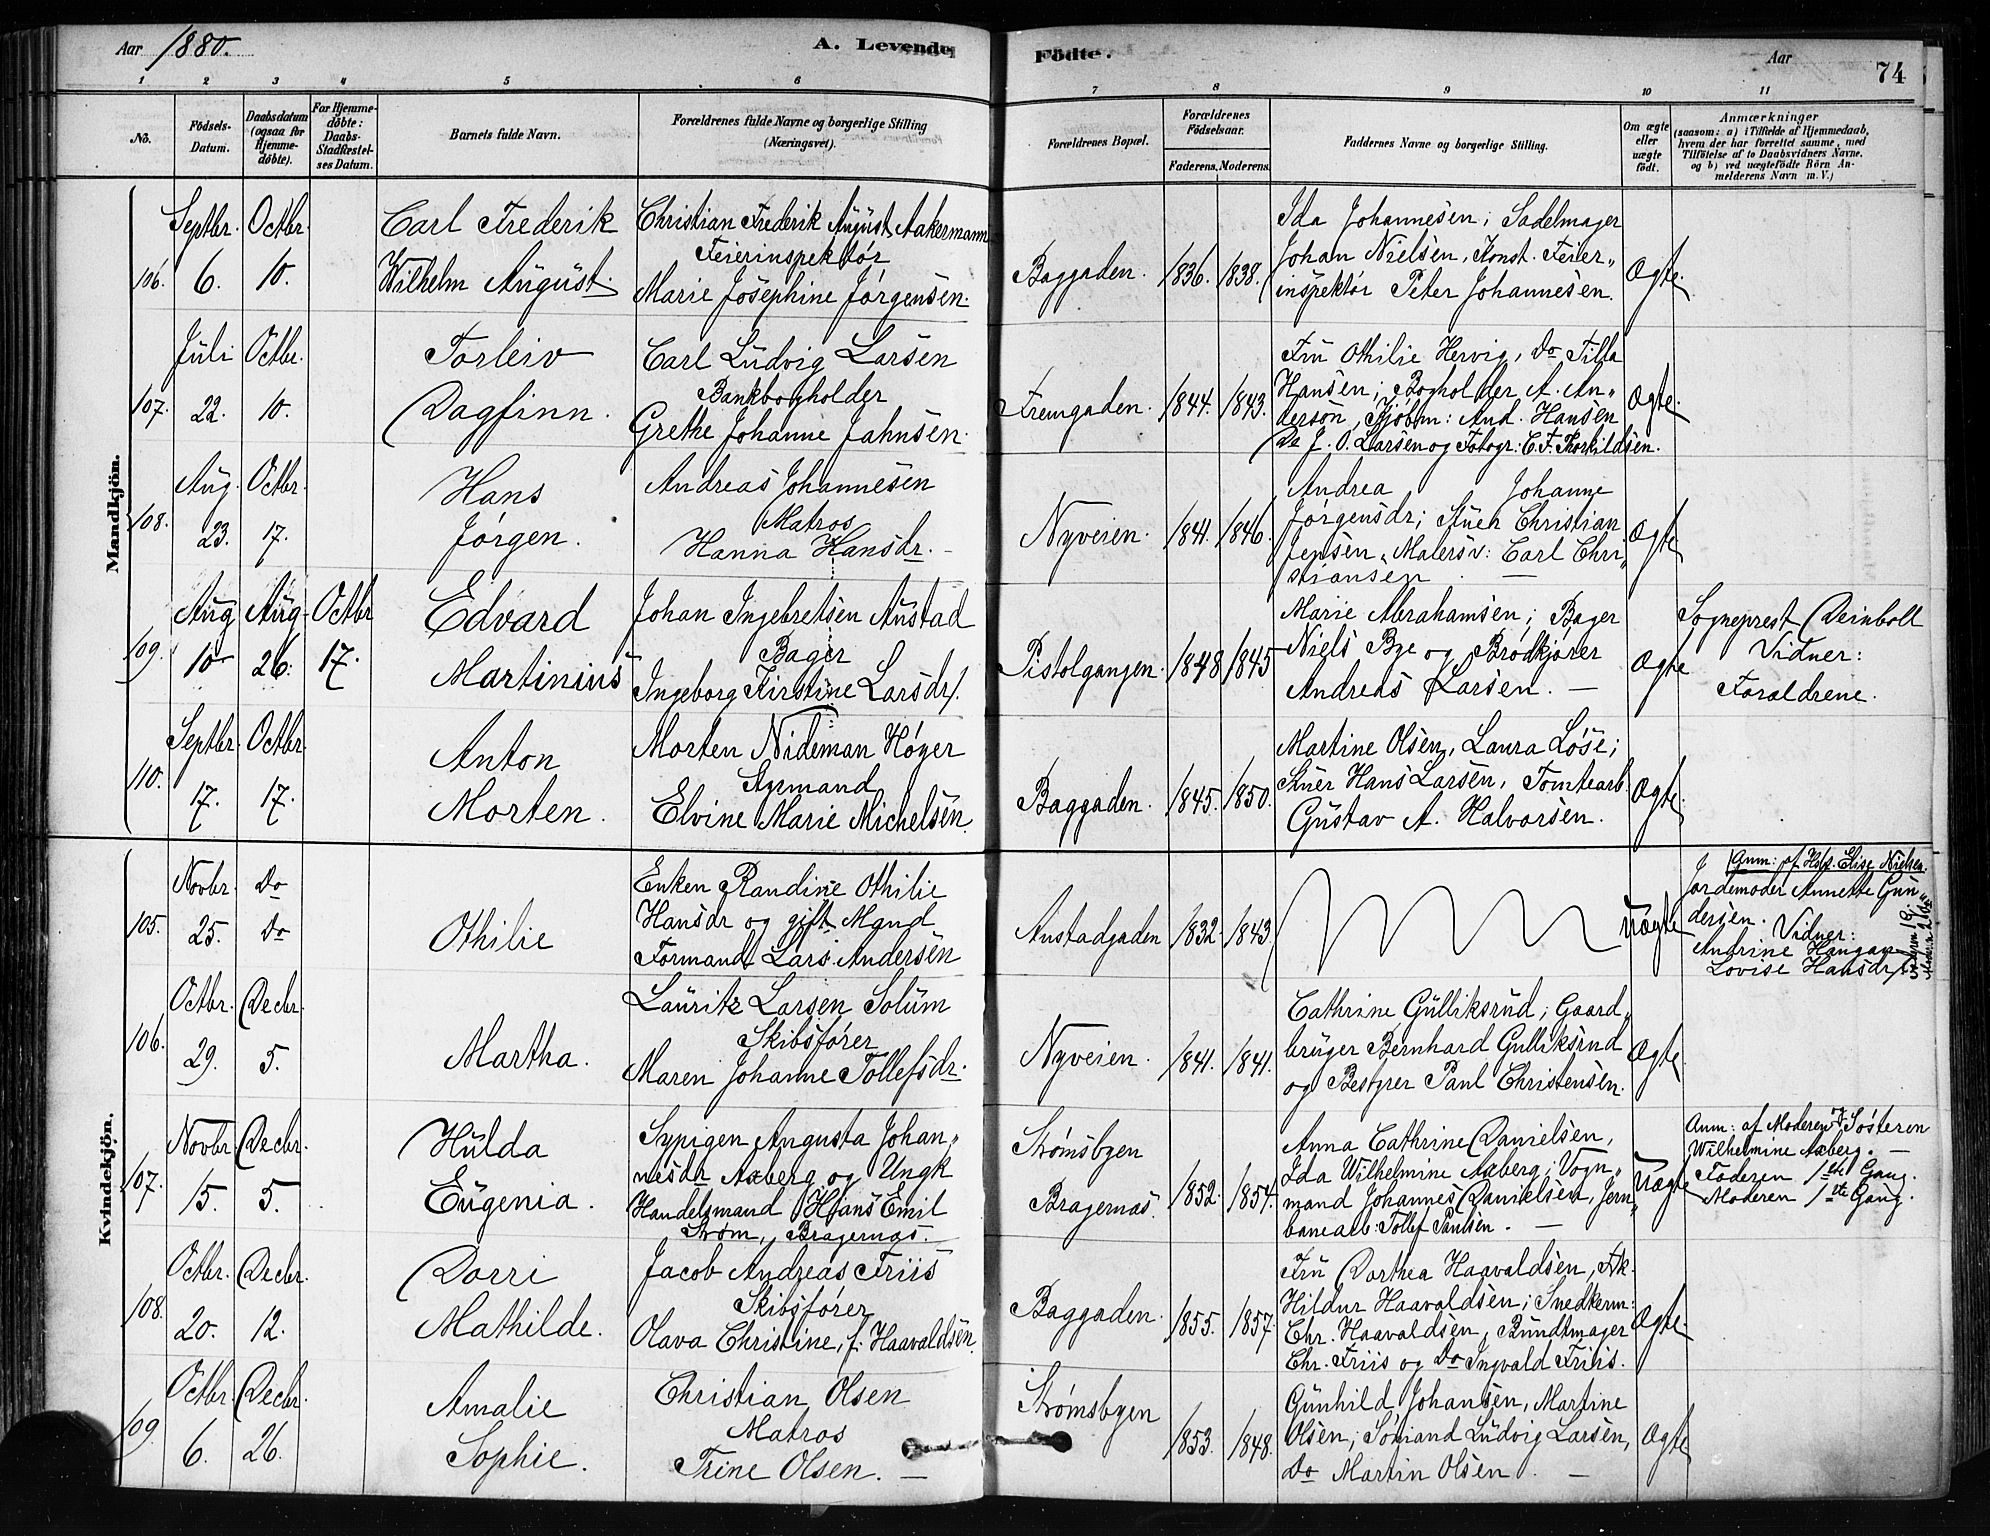 Aar 1880.
A. Levende Födte.
Aar
74
1 2 3 4 5 6 7 8 9 10 11
No.
Födsels-Datum.
Daabsdatum (ogsaa for Hjemme-döbte).
For Hjemme-döbte: Daabs-Stadfæstel-ses Datum.
Barnets fulde Navn.
Forældrenes fulde Navne og borgerlige Stilling (Næringsvei).
Forældrenes Bopæl.
Forældrenes Födselsaar.
Faderens. Moderens.
Faddernes Navne og borgerlige Stilling.
Om ægte eller uægte födt.
Anmærkninger
(saasom: a) i Tilfælde af Hjemmedaab, hvem der har forrettet samme, med Tilföielse af to Daabsvidners Navne, og b) ved uægtefödte Börn An-melderens Navn m. V.)
Mandkjön.
106.
Septbr. 6.
Octbr. 10.
Carl Frederik
Wilhelm August.
Christian Frederik August Aakermann
Feierinspektør
Marie Josephine Jørgensen.
Baggaden.
1836.
1838.
Ida Johannesen; Sadelmager
Johan Nielsen, Konst. Feier„
inspektør Peter Johannesen.
Ægte.
107.
Juli 22.
Octbr. 10.
Torleiv
Dagfinn.
Carl Ludvig Larsen
Bankbogholder
Grethe Johanne Jahnsen.
Fremgaden.
1844.
1843.
Fru Othilie Hervig, Do Tilla
Hansen; Bogholder A. An„
derson, Kjöbm: And. Hansen
Do J. O. Larsen og Fotogr. C. F. Thorkildsen.
Ægte.
108.
Aug. 23.
Octbr. 17.
Hans
Jørgen.
Andreas Johannesen
Matros
Hanna Hansdr.
Nyveien.
1841.
1846.
Andrea Johanne
Jørgensdr; Stuer Christian
Jensen, Malersv: Carl Chri„
stiansen
Ægte
109.
Aug 10
Aug. 26.
Octbr 17.
Edvard
Martinius
Johan Ingebretsen Austad
Bager
Ingeborg Kirstine Larsdr.
Pistolgangen.
1848
1845
Marie Abrahamsen; Bager
Niels Bye og Brödkjörer
Andreas Larsen.
Ægte
Sogneprest Deinboll
Vidner:
Forældrene.
110.
Septbr. 17.
Octbr. 17.
Anton
Morten.
Morten Nideman Höyer
Styrmand
Elvine Marie Michelsen.
Baggaden.
1845.
1850.
Martine Olsen, Laura Löse;
Stuer Hans Larsen, Tomtearb.
Gustav A. Halvorsen.
Ægte.
Kvindekjön.
105.
Novbr. 25.
Do Do
Othilie
Enken Randine Othilie
Hansdr og gift Mand
Formand Lars Andersen
Austadgaden
1832.
1843.
Uægte
Anm: af Hdlr. Elise Nielsen.
Jordemoder Annette Gun„
dersen.
Vidner:
Andrine Haugan
Lovise Hansdr.
106.
Octbr. 29.
Decbr. 5.
Martha.
Lauritz Larsen Solum
Skibsfører
Maren Johanne Tollefsdr.
Nyveien.
1841.
1841.
Cathrine Gulliksrud; Gaard„
bruger Bernhard Gulliksrud
og Bestyrer Paul Christensen.
Ægte.
107.
Novbr 15.
Decbr. 5.
Hulda
Eugenia.
Sypigen Augusta Johan„
nesdr Aaberg og Ungk
Handelsmand Hans Emil
Strøm, Bragernæs.
Strømsbyen
Bragernæs.
1852.
1854.
Anna Cathrine Danielsen,
Ida Wilhelmine Aaberg; Vogn„
mand Johannes Danielsen, Jern„
banearb: Tollef Paulsen.
Uægte
Anm: af Moderen og Søsteren
Wilhelmine Aaberg.
Faderen 1ste Gang.
Moderen 1ste Gang.
108.
Octbr. 20.
Decbr. 12.
Dorri
Mathilde.
Jacob Andreas Friis
Skibsfører
Olava Christine, f. Haavaldsen.
Baggaden.
1855.
1857.
Fru Dorthea Haavaldsen, Frk.
Hildur Haavaldsen; Snedkerm:
Chr. Haavaldsen, Bundtmager
Chr. Friis og Do Ingvald Friis.
Ægte.
109.
Octbr. 6.
Decbr. 26.
Amalie
Sophie.
Christian Olsen
Matros
Trine Olsen.
Strømsbyen
1853.
1848.
Gunhild Johansen, Martine
Olsen; Sømand Ludvig Larsen,
Do Martin Olsen.
Ægte